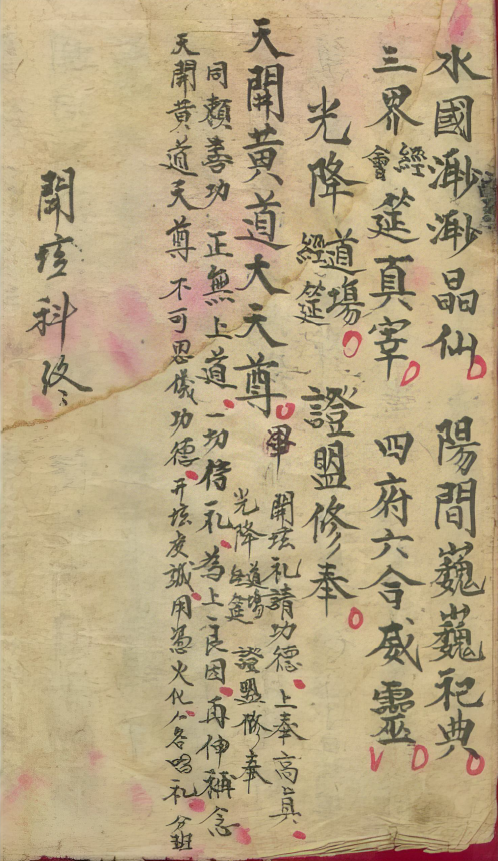 水國渺渺晶仙 陽間巍巍祀典
三界會經筵真宰 四府六合威靈
光降道場經筵 證盟修奉
天開黃道大天尊 畢
開壇礼請功德 上奉高真
光降道場經筵 證盟修奉
同頼善功 正無上道 一切信礼 為上良因 再伸稱念
天開黃道天尊 不可思儀功德 开壇度誠 用憑火化 各唱礼 分班
開壇科終